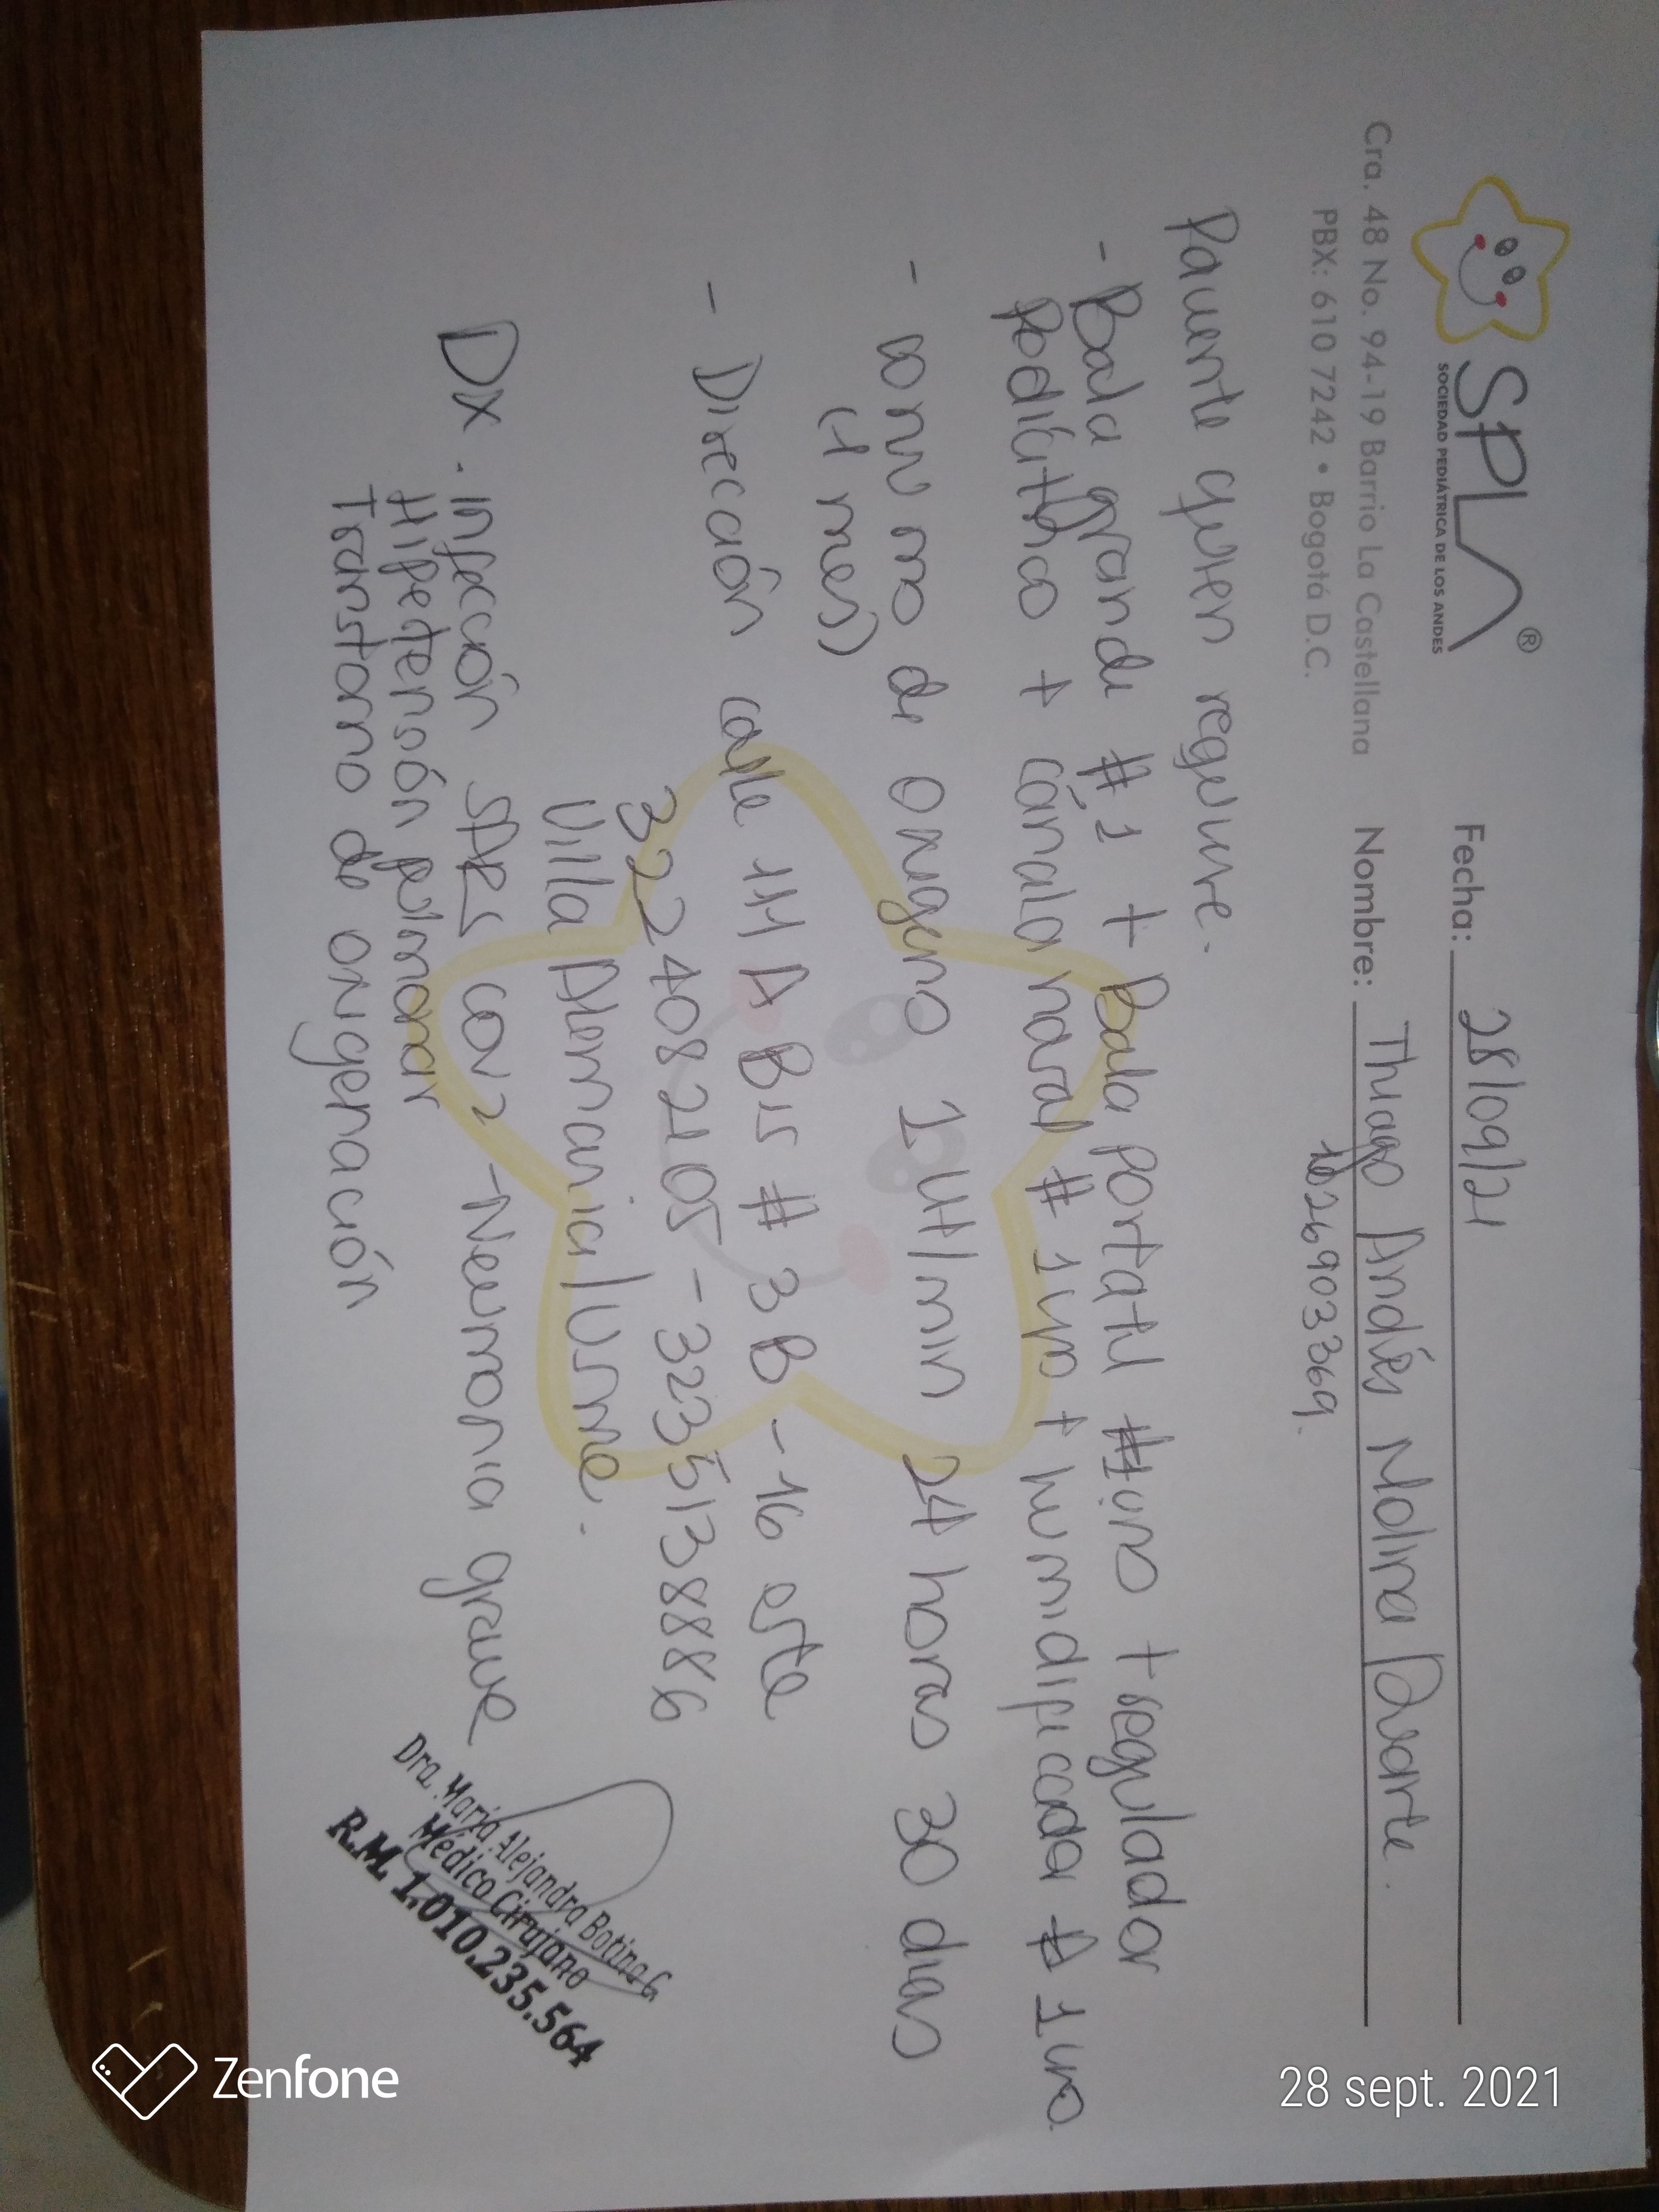 SPLA®
SOCIEDAD PEDIÁTRICA DE LOS ANDES
Cra. 48 No. 94-19 Barrio La Castellana
PBX: 610 7242 • Bogotá D.C.
Fecha: 28/09/21
Nombre: Thiago Andrés Molina Duarte.
1026903369.
Paciente quien requiere.
- Bala grande #1 + Bala portatil #1uno + regulador
Pediátrico + cánula nasal #1uno + humidificador #1uno
- consumo de oxigeno 1 Lit/min 24 horas 30 dias
(1 mes)
- Dirección calle 111 A Bis # 3 B - 16 este
3224082105 - 3235138886
Villa Alemania/Usme.
Dx. infección SARS cov 2 - Neumonia grave
Hipertensión pulmonar
Transtorno de oxigenación
Dra. Maria Alejandra Botina G.
Médico Cirujano
R.M. 1.010.235.564
Zenfone
28 sept. 2021